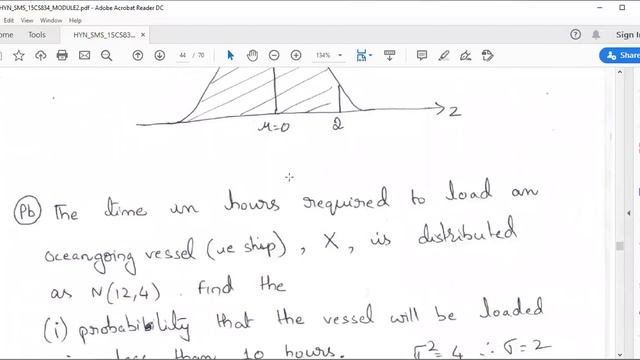 HYN_SMS_15CS834_MODULE2.pdf - Adobe Acrobat Reader DC
HYN_SMS_15CS834... ×
44 / 70
134%
Share
μ=0
2
Z
Pb The time in hours required to load an
oceangoing vessel (ie ship), X, is distributed
as N(12,4). Find the
(i) probability that the vessel will be loaded
in less than 10 hours. σ²=4 ∴ σ=2